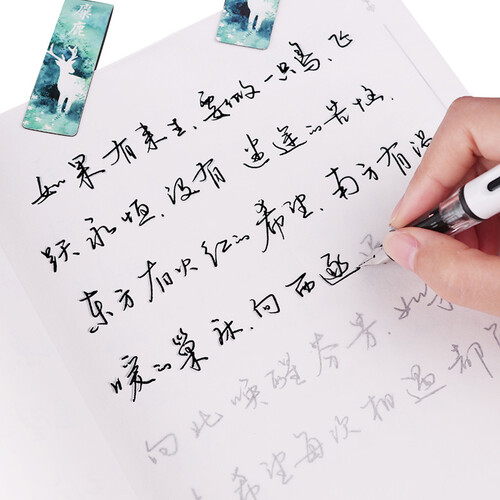 麋鹿
如果有来生，要做一只鸟，飞
跃永恒，没有迷途的苦恼。
东方有火红的希望，南方有温
暖的巢床，向西逐
向北唤醒芬芳。如
希望每次相遇都